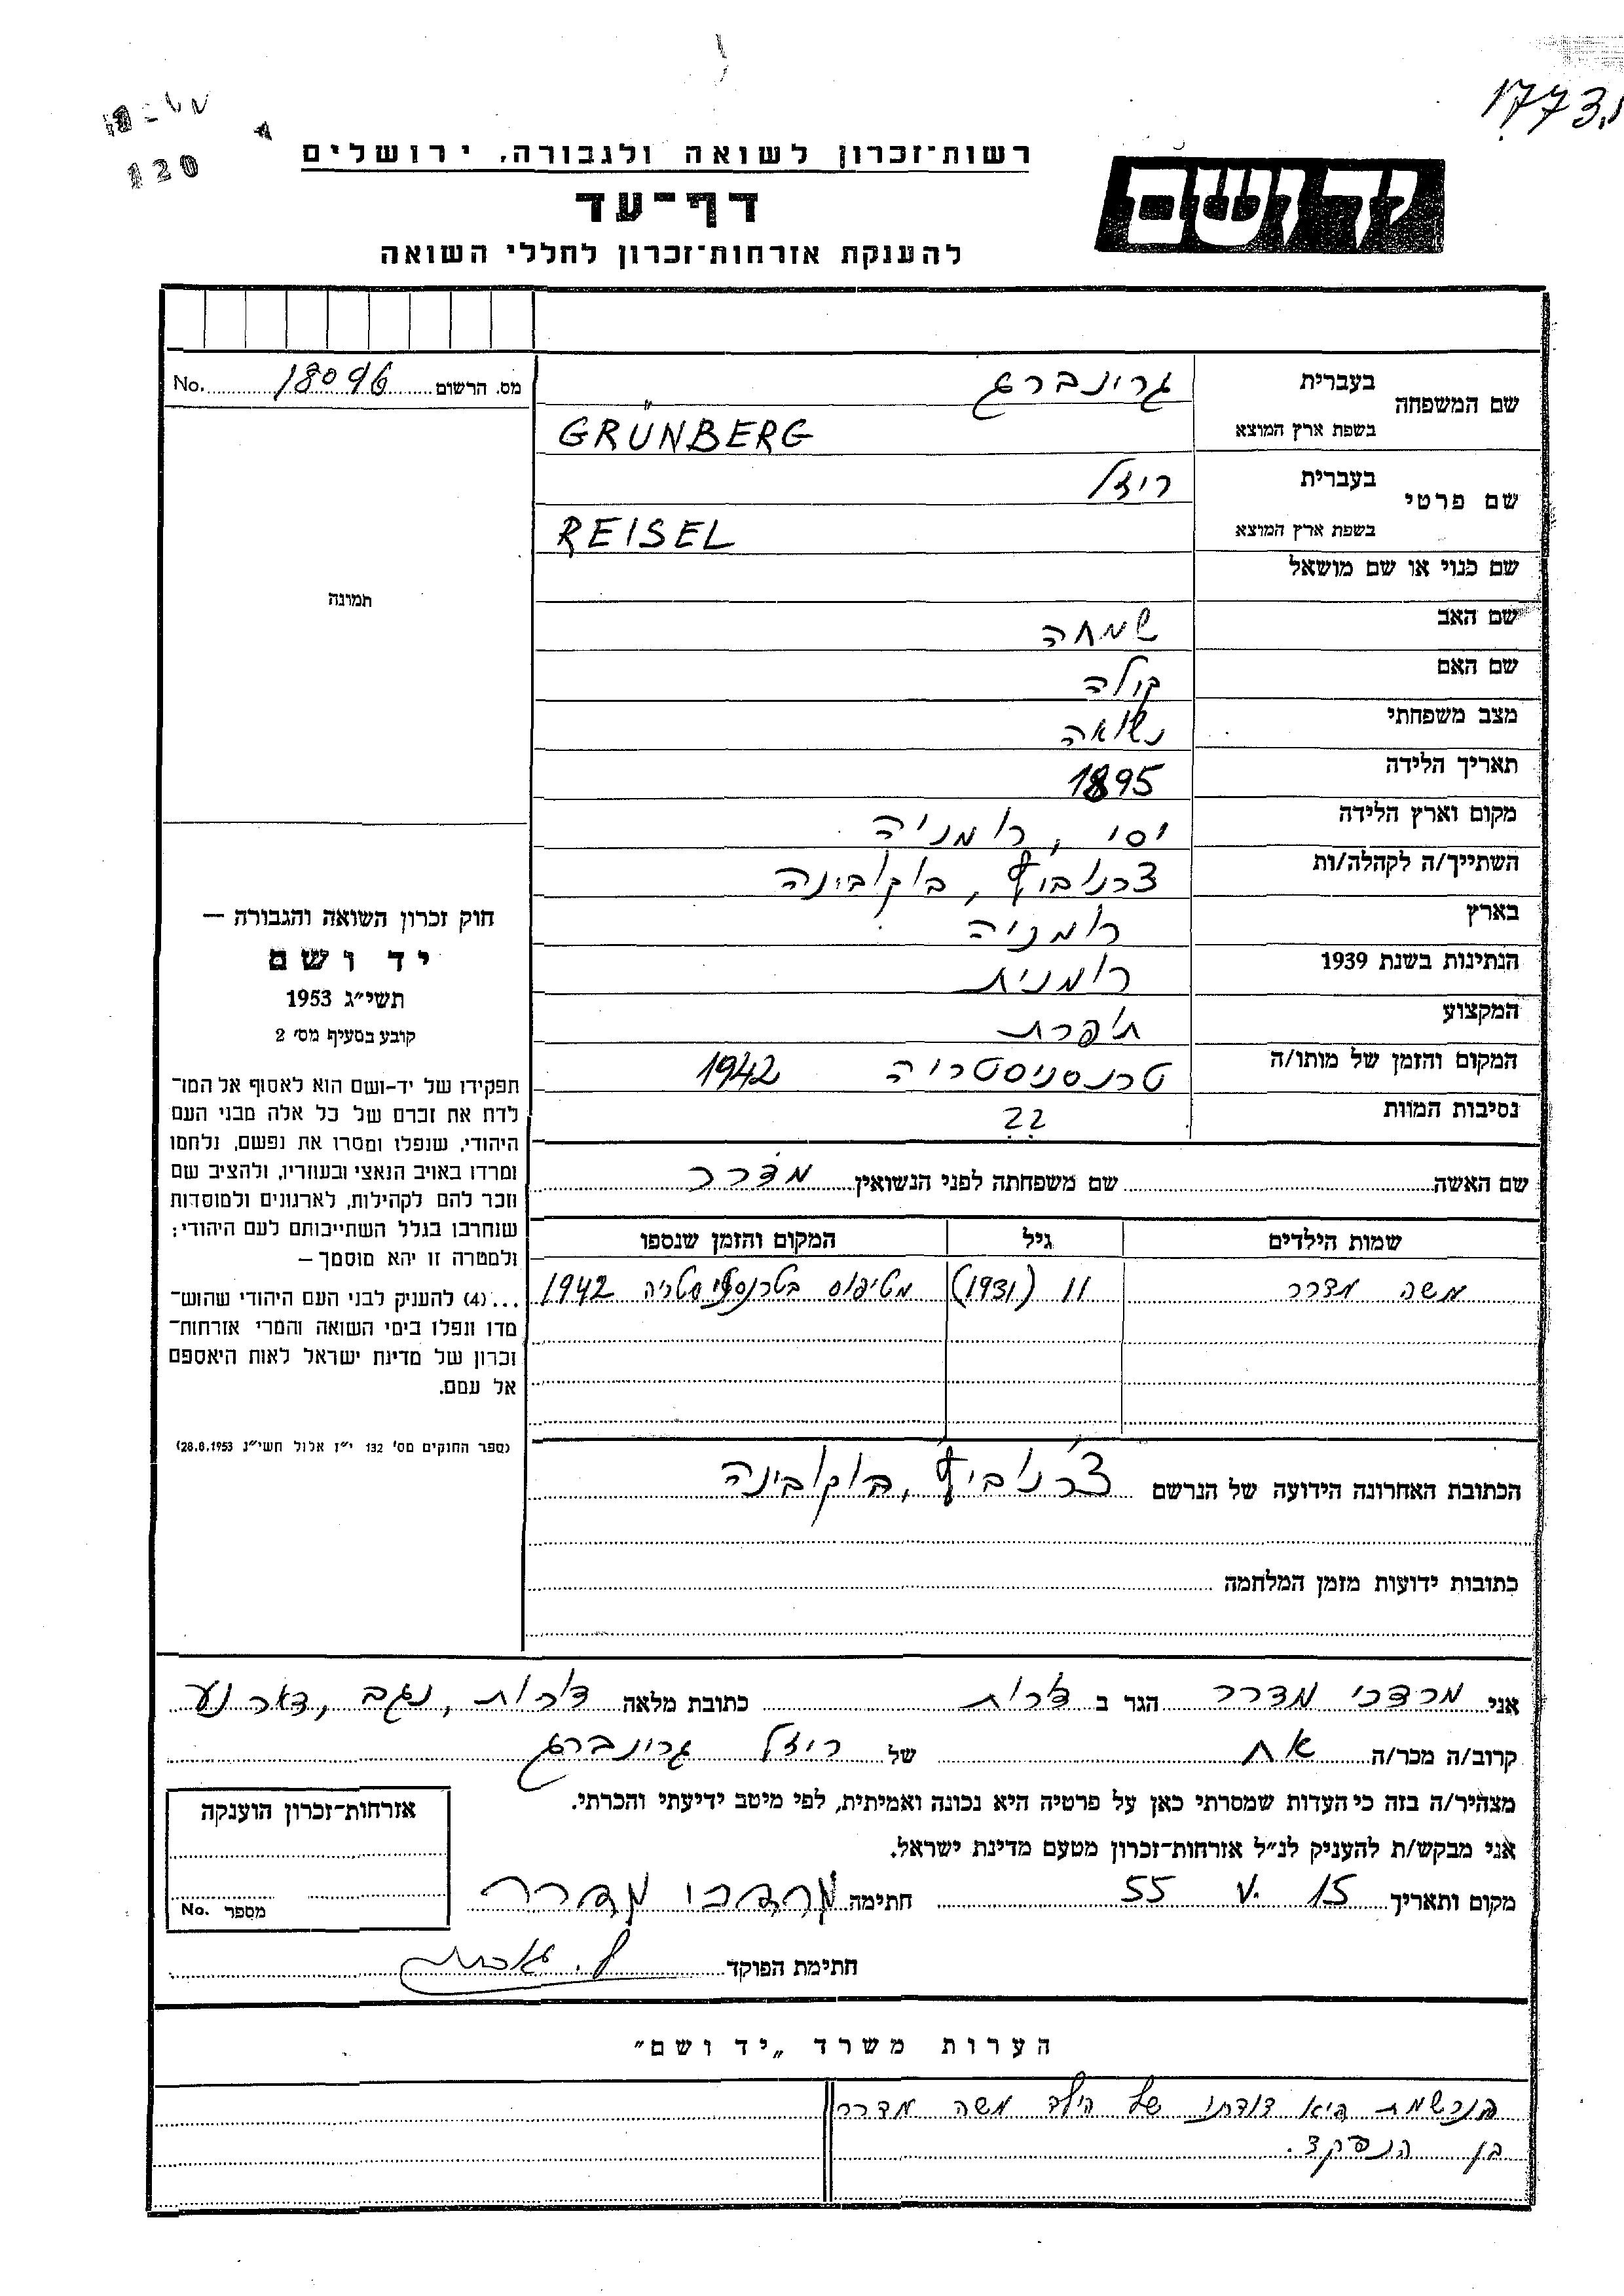 1773
120
רשות־זכרון לשואה ולגבורה, ירושלים
יד ושם
דף־עד
להענקת אזרחות־זכרון לחללי השואה
מס. הרשום 18096 No.
שם המשפחה בעברית גרינברג
בשפת ארץ המוצא GRÜNBERG
שם פרטי בעברית ריזל
בשפת ארץ המוצא REISEL
שם כנוי או שם מושאל
שם האב שמחה
שם האם
מצב משפחתי נשואה
תאריך הלידה 1895
מקום וארץ הלידה יסי, רומניה
השתייך/ה לקהלה/ות צרנוביץ, בוקובינה
בארץ רומניה
הנתינות בשנת 1939 רומנית
המקצוע תופרת
המקום והזמן של מותו/ה טרנסניסטריה 1942
נסיבות המוות ??
שם האשה שם משפחתה לפני הנשואין מדרר
שמות הילדים גיל המקום והזמן שנספו
משה מדרר 11 (1931) מטיפוס בטרנסניסטריה 1942
הכתובת האחרונה הידועה של הנרשם צרנוביץ, בוקובינה
כתובות ידועות מזמן המלחמה
תמונה
חוק זכרון השואה והגבורה —
יד ושם
תשי״ג 1953
קובע בסעיף מס׳ 2
תפקידו של יד-ושם הוא לאסוף אל המו־
לדת את זכרם של כל אלה מבני העם
היהודי, שנפלו ומסרו את נפשם, נלחמו
ומרדו באויב הנאצי ובעוזריו, ולהציב שם
וזכר להם לקהילות, לארגונים ולמוסדות
שנחרבו בגלל השתייכותם לעם היהודי;
ולמטרה זו יהא מוסמך —
...(4) להעניק לבני העם היהודי שהוש־
מדו ונפלו בימי השואה והמרי אזרחות־
זכרון של מדינת ישראל לאות היאספם
אל עמם.
(ספר החוקים מס׳ 132 י״ז אלול תשי״ג 28.8.1953)
אני מרדכי מדרר הגר ב דורות כתובת מלאה דורות, נגב, דאר נע
קרוב/ה מכר/ה אח של ריזל גרינברג
מצהיר/ה בזה כי העדות שמסרתי כאן על פרטיה היא נכונה ואמיתית, לפי מיטב ידיעתי והכרתי.
אני מבקש/ת להעניק לנ״ל אזרחות־זכרון מטעם מדינת ישראל.
מקום ותאריך 15 V. 55 חתימה מרדכי מדרר
חתימת הפוקד
אזרחות־זכרון הוענקה
מספר No.
הערות משרד „יד ושם״
הנרשמת היא דודתו של הילד משה מדרר
בן הנפקד.